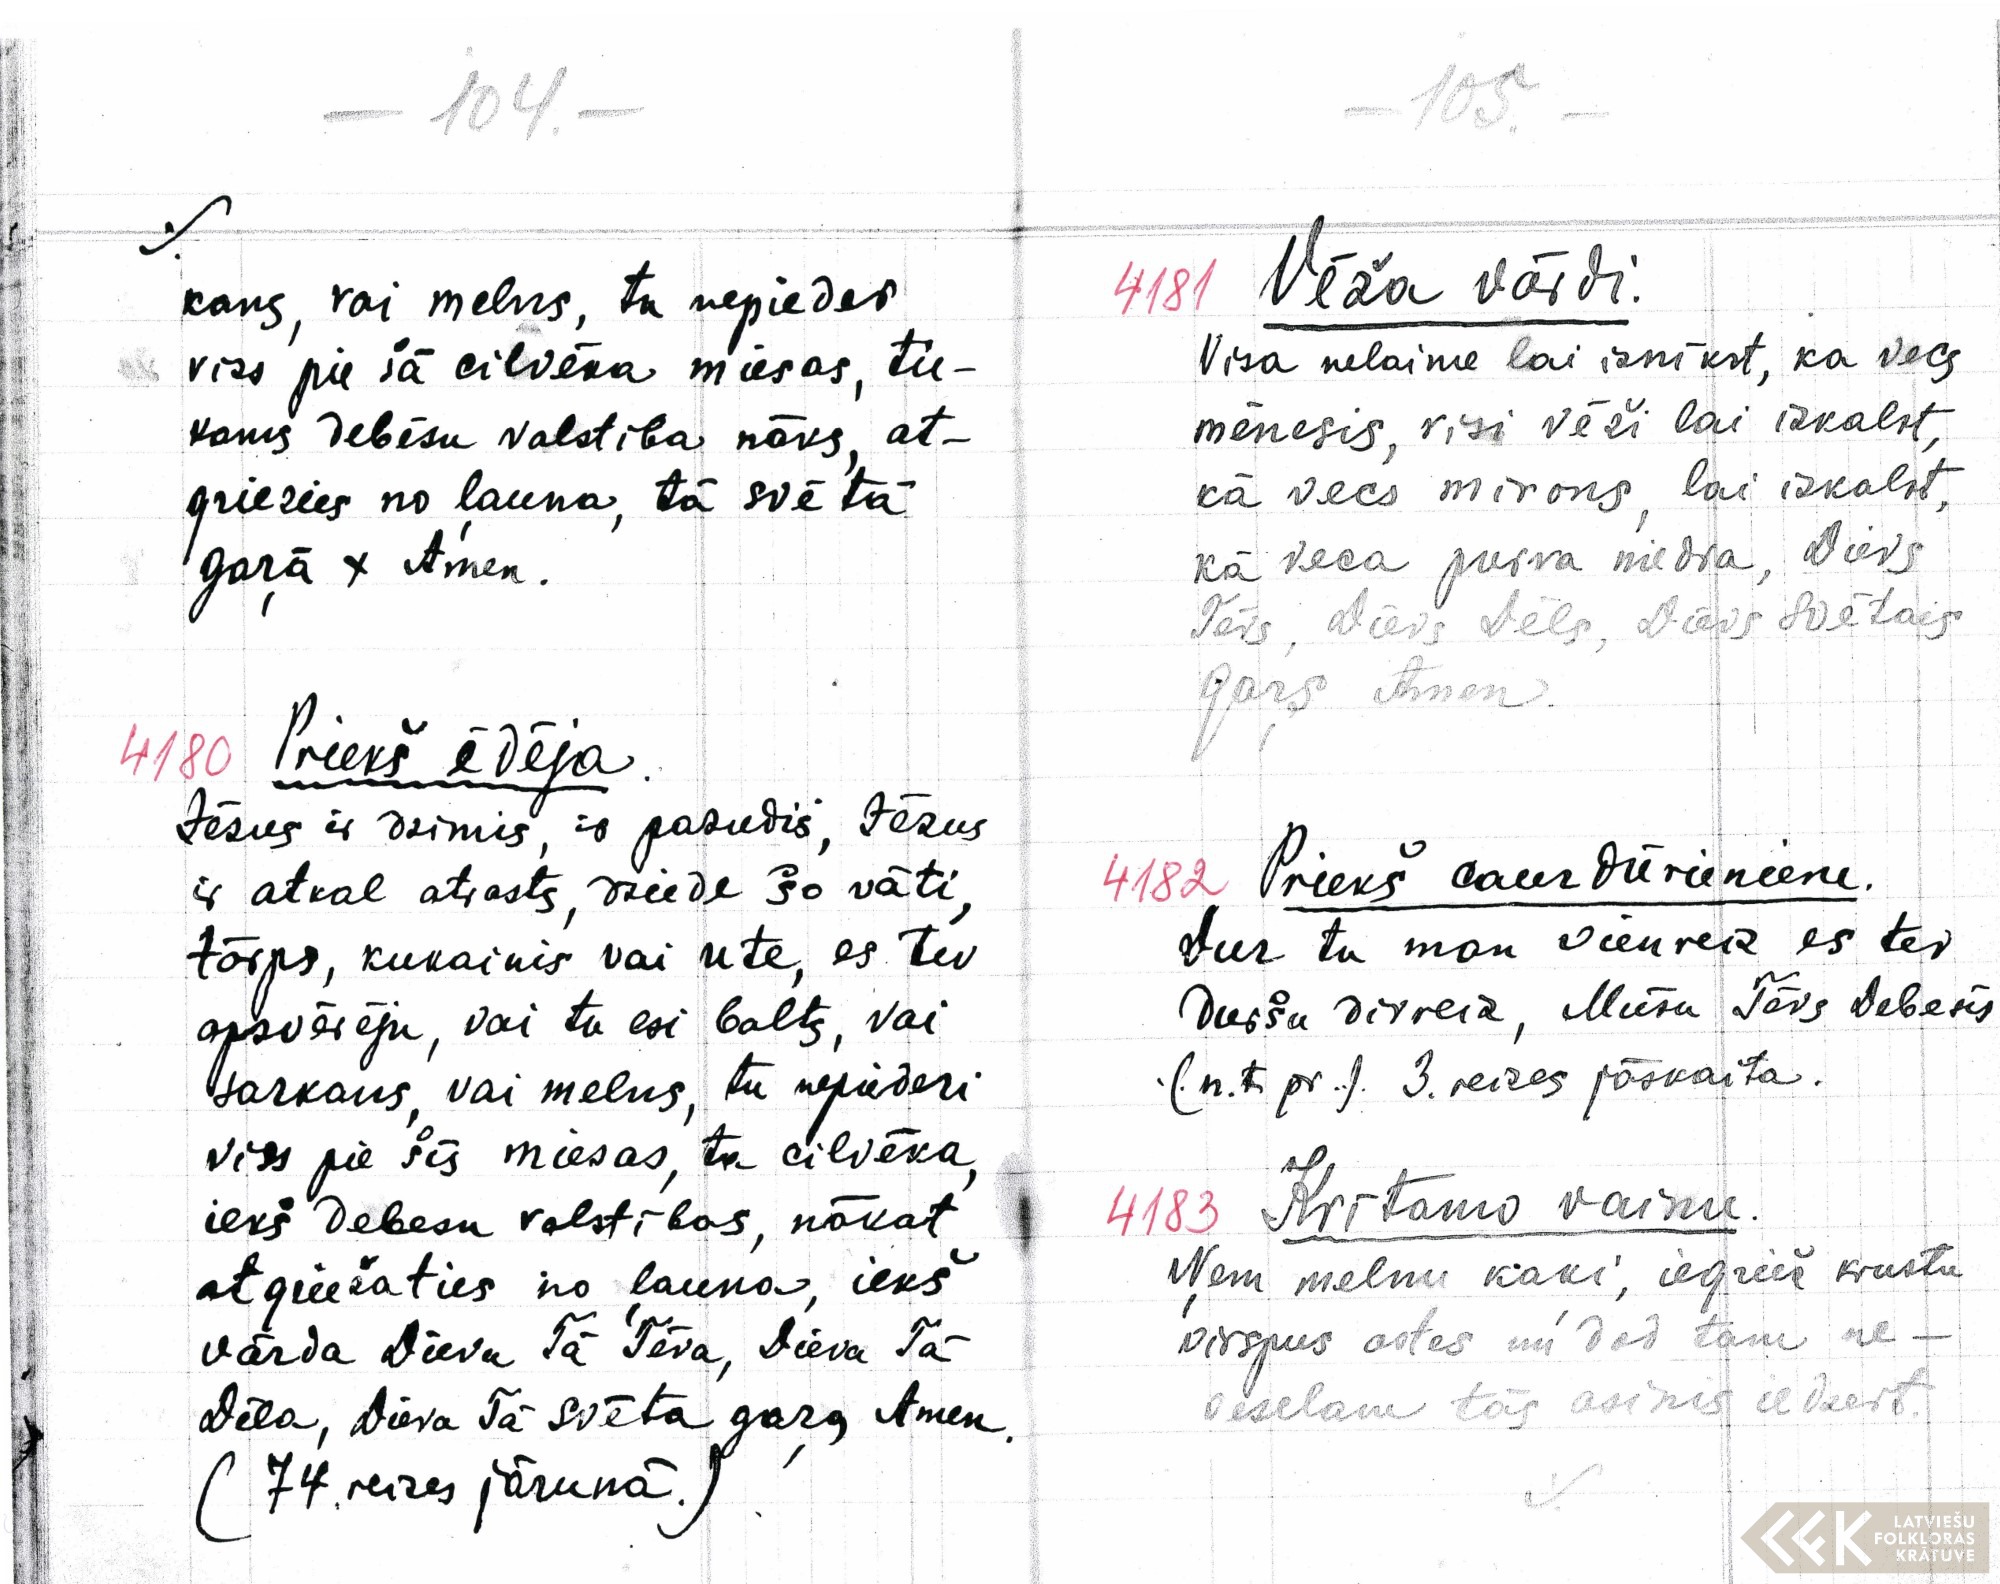 — 104. —
kans, vai melns, tu nepieder
viss pie šā cilvēka miesas, tu-
kams debēsu valstība nāks, at-
griezies no ļauna, tā svētā
gaŗā × Amen.
4180 Priekš ēdēja.
Jēzus ir dzimis, ir pazudis, Jēzus
ir atkal atrasts, dziede šo vāti,
tārps, kukainis vai ute, es tev
apsvērēju, vai tu esi balts, vai
sarkans, vai melns, tu nepiederi
viss pie šīs miesas, ta cilvēka,
iekš debesu valstības, nākat
atgriežaties no ļauna, iekš
vārda Dieva Tā Tēva, Dieva Tā
Dēla, Dieva Tā svēta gaŗa, Amen.
(74. reizes jārunā.)
— 105. —
4181 Vēža vārdi.
Visa nelaime lai iznīkst, ka vecs
mēnesis, visi vēži lai izkalst,
kā vecs mirons, lai izkalst,
kā veca purva niedra, Dievs
Tēvs, Dievs Dēls, Dievs Svētais
gaŗs Amen.
4182 Priekš caurdūrieniem.
Dur tu man vienreiz es tev
duršu divreiz, Mūsu Tēvs Debesīs
(n.t. pr..). 3. reizes jāskaita.
4183 Krītamo vainu.
Ņem melnu kaķi, iegriež krustu
virspus astes un dod tam ne-
veselam tās asinis iedzert.
LATVIEŠU
FOLKLORAS
KRĀTUVE